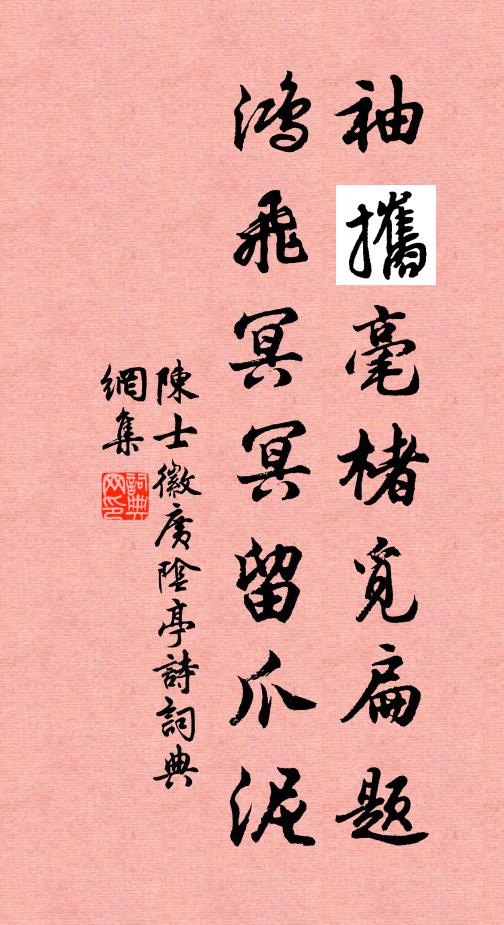 袖攜毫楮覓扁題
鴻飛冥冥留爪泥
陳士徽廣陰亭詩詞典
網集
詞典網印